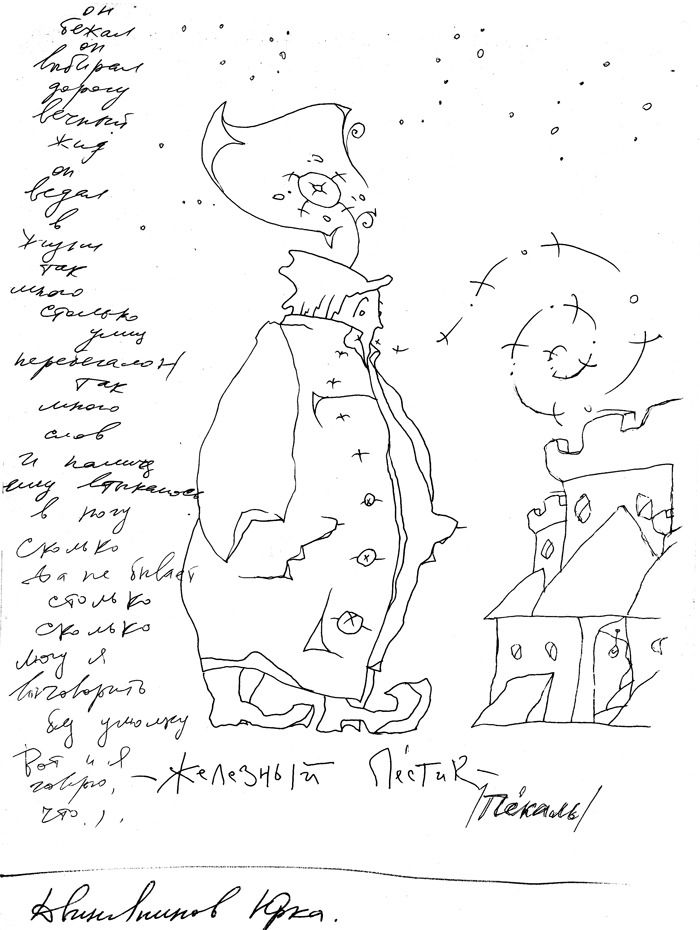 он
бежал
он
выбирал
дорогу
вечный
жид
он
ведал
в
жизни
так
много
столько
улиц
перебегал он
так
много
слов
и палиц
ему втыкалось
в ногу
сколько
да не бывает
столько
сколько
могу я
выговорить
без умолку
Вот и я
говорю,
что...
— Железный Пестик —
/Пекаль/
Юрка.